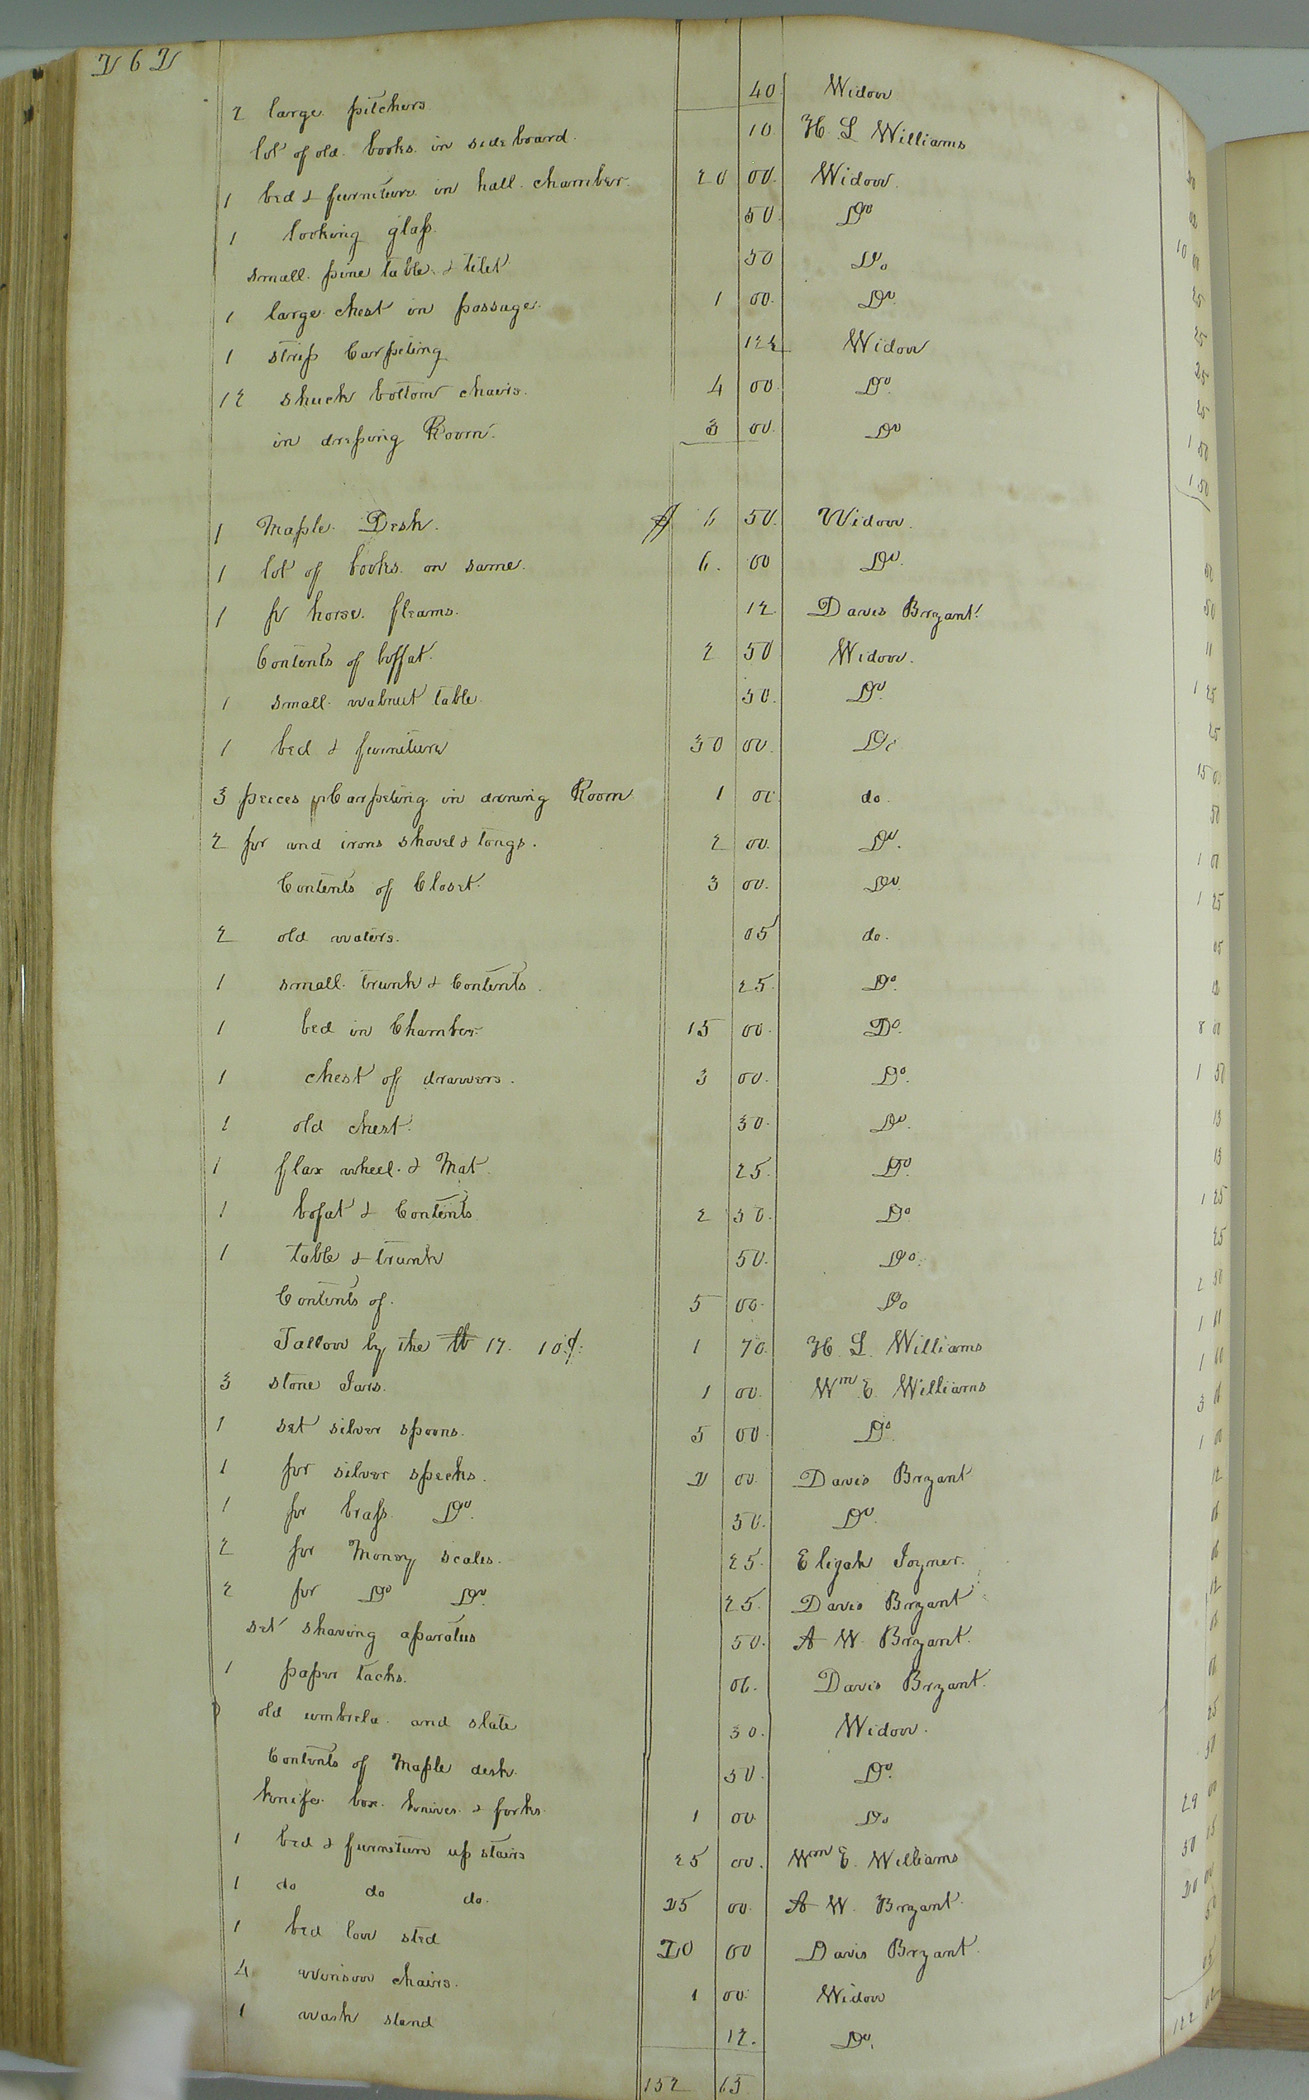 262
2 large pitchers. 40 Widow
lot of old books in side board. 10 H. L. Williams
1 bed & furniture in hall chamber. 20 00 Widow.
1 looking glass. 50 Do
small pine table & tilet 50 Do
1 large chest in passage. 1 00 Do
1 strip Carpeting 12½ Widow
12 shuck bottom chairs. 4 00 Do
in dressing Room. 3 00 Do
1 Maple Desk. $ 6 50 Widow.
1 lot of books on same. 6. 00 Do
1 pr horse fleams. 12 Davis Bryant
Contents of boffat. 2 50 Widow.
1 small walnut table 50 Do
1 bed & furniture 30 00 Do
3 peices Carpeting in dining Room 1 00 do.
2 pr and irons shovel & tongs. 2 00 Do.
Contents of Closet. 3 00 Do
2 old waters. 05 do.
1 small trunk & Contents. 25 Do
1 bed in Chamber 15 00 Do
1 chest of drawers. 3 00 Do.
1 old chest. 30 Do
1 flax wheel & Mat 25 Do
1 bofat & Contents 2 50 Do
1 table & trunk 50 Do
Contents of. 5 00 Do
Tallow by the lb 17. 10¢. 1 70 H. L. Williams
3 stone Jars. 1 00 Wm E. Williams
1 set silver spoons. 5 00 Do
1 pr silver specks. 2 00 Davis Bryant
1 pr brass Do 50 Do
2 pr Money scales. 25 Elijah Joyner.
2 pr Do Do 25 Davis Bryant
set shaving aparatus 50 A W. Bryant.
1 paper tacks. 06. Davis Bryant.
old umbrela and slate 30. Widow.
Contents of Maple desk. 50 Do
knife box knives & forks 1 00 Do
1 bed & furniture up stairs 25 00. Wm E. Williams
1 do do do. 25 00 A W. Bryant
1 bed low sted 20 00 Davis Bryant
4 winsow chairs. 1 00 Widow
1 wash stand 12. Do
152 65